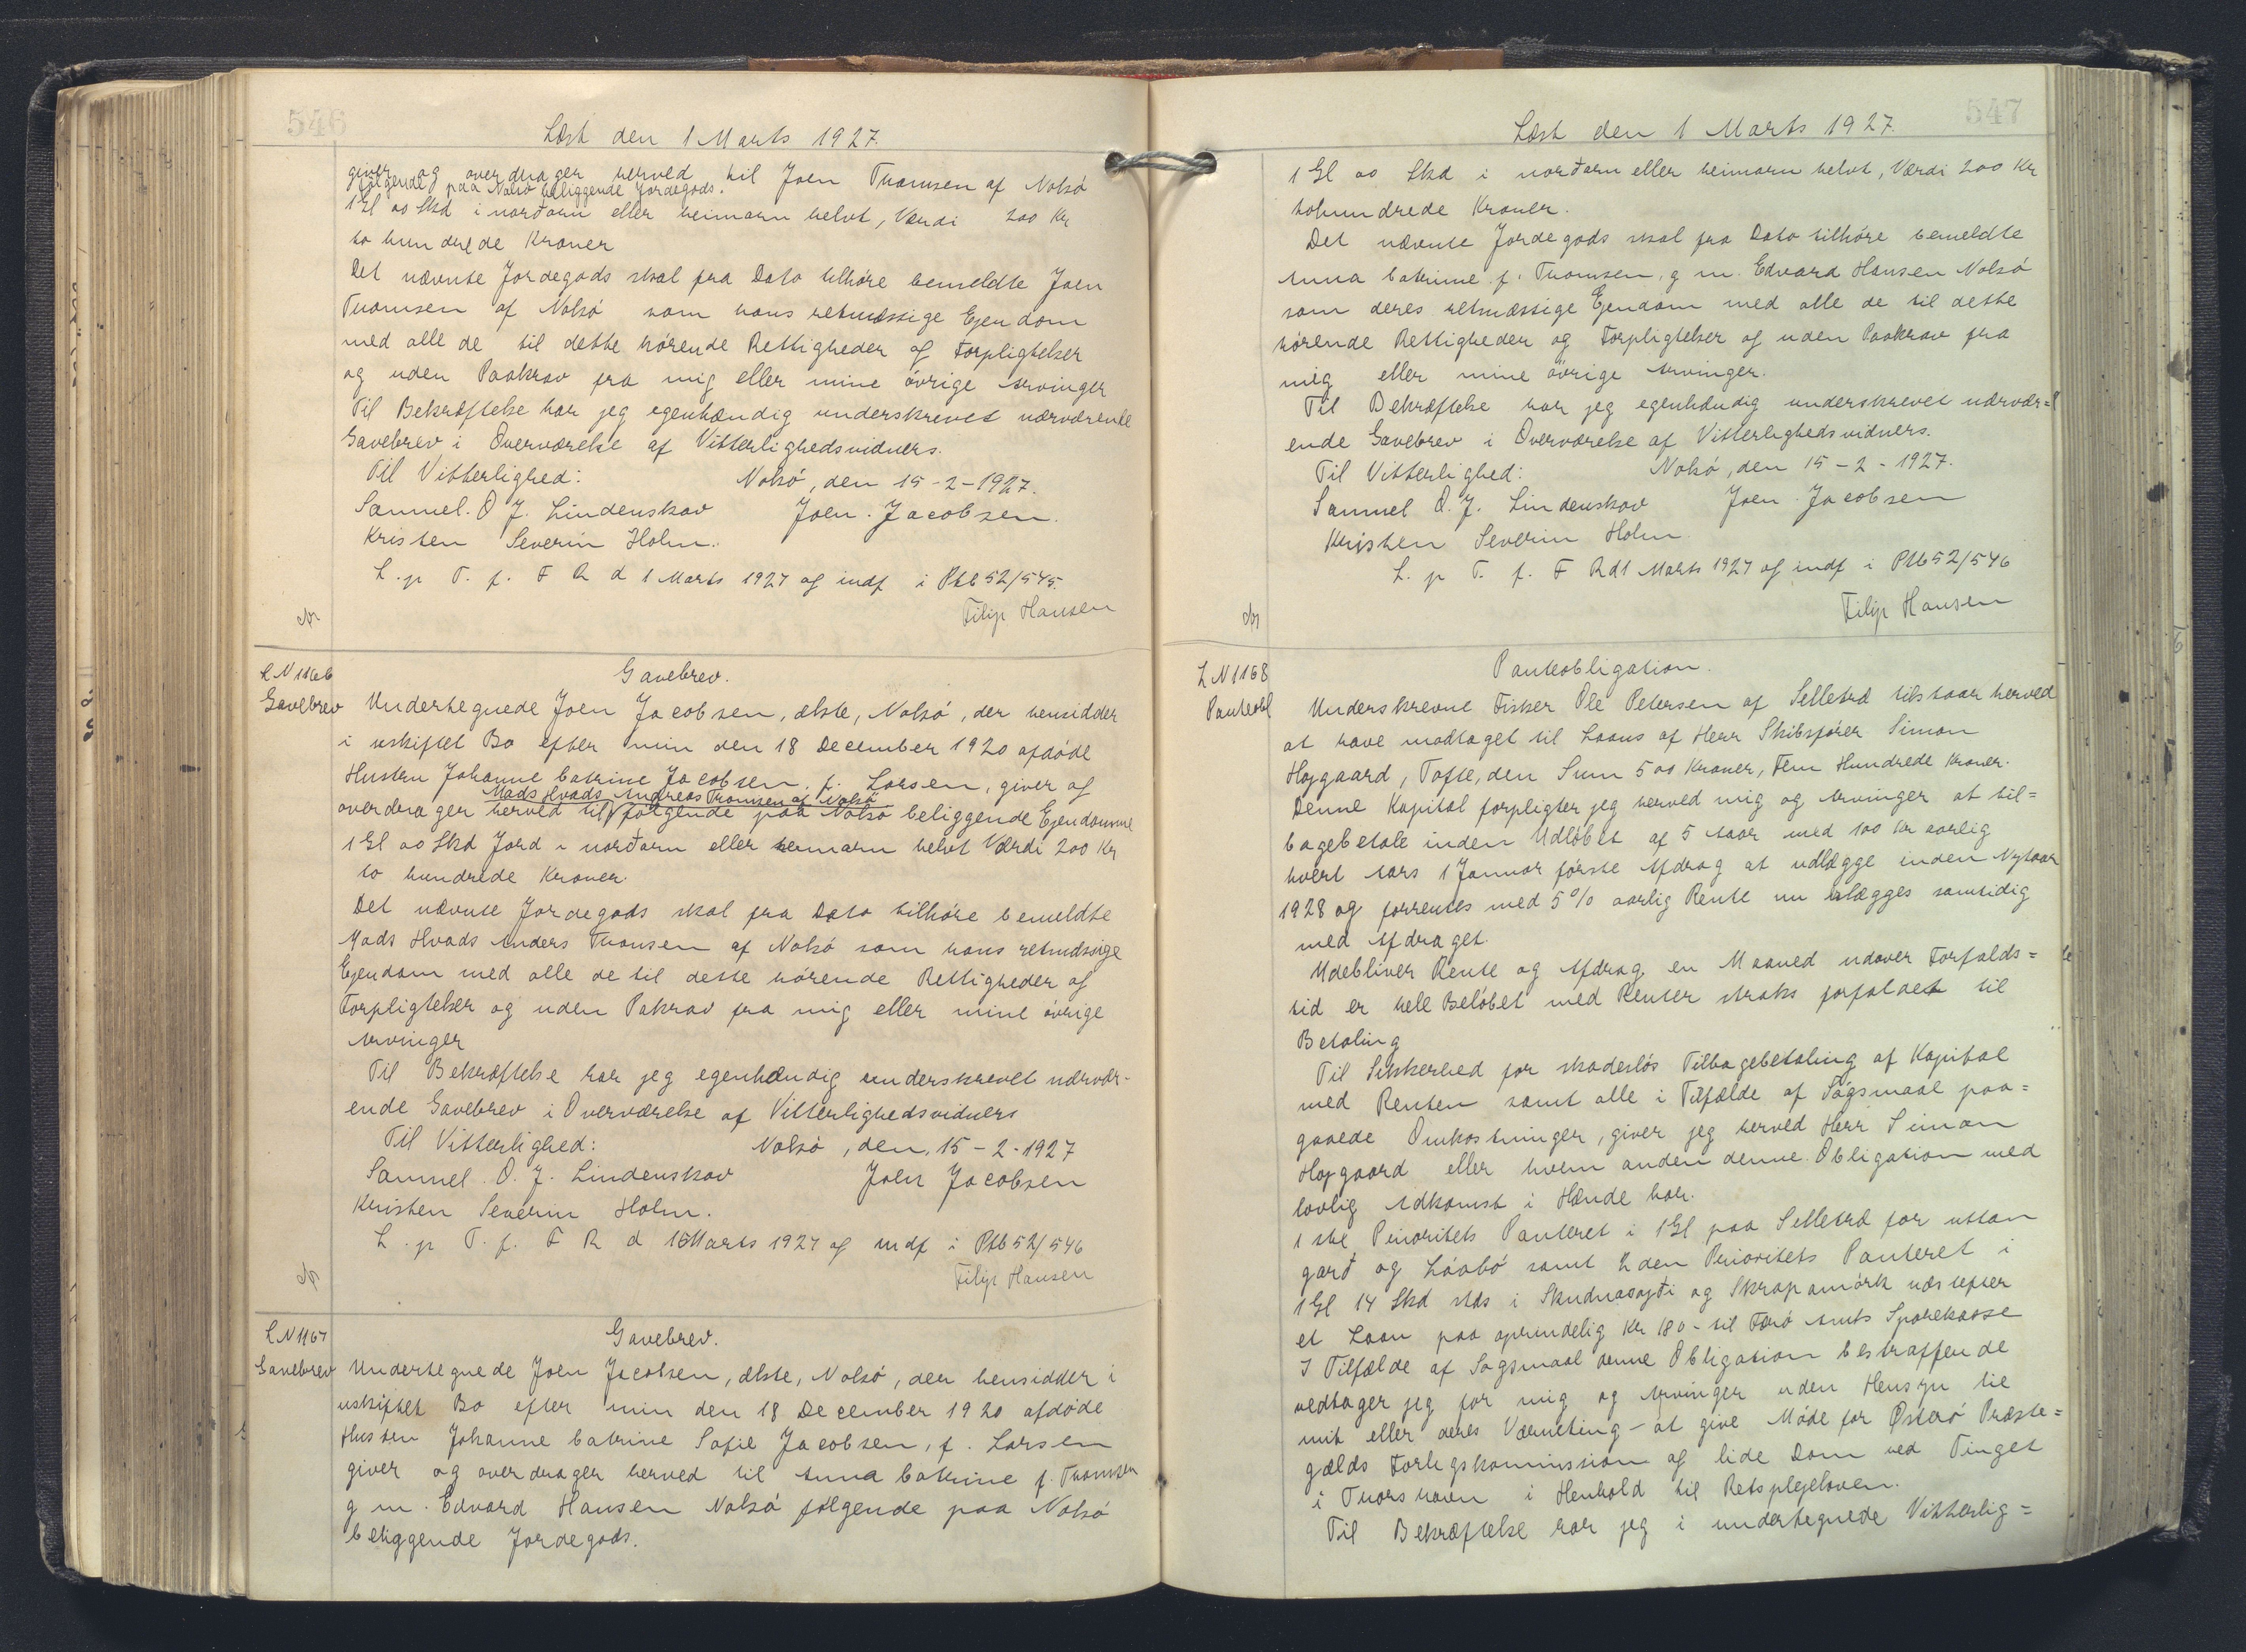 546
Læst den 1 Marts 1927.
giver og overdrager herved til Joen Thomsen af Nolsö
følgende paa Nolsö beliggende Jordegods.
1 Gl 00 Skd i norðaru eller heimaru helvt, Værdi 200 Kr
to hundrede Kroner
Det nævnte Jordegods skal fra Dato tilhöre bemeldte Joen
Thomsen af Nolsö som hans retmæssige Ejendom
med alle de til dette hörende Rettigheder og Forpligtelser
og uden Paakrav fra mig eller mine övrige Arvinger
Til Bekræftelse har jeg egenhændig underskrevet nærværende
Gavebrev i Overværelse af Vitterlighedsvidners.
Til Vitterlighed: Nolsö, den 15-2-1927.
Samuel. O J. Lindenskov Joen. Jacobsen.
Kristen Severin Holm.
L. p T. f. F R d 1 Marts 1927 og indf i Ptb 52/545.
Filip Hansen
LN 1166 Gavebrev.
Gavebrev Undertegnede Joen Jacobsen, ælste, Nolsö, der hensidder
i uskiftet Bo efter min den 18 December 1920 afdöde
Hustru Johanne Catrine Jacobsen, f. Larsen, giver og
Mads Hvads Andreas Thomsen af Nolsö
overdrager herved til følgende paa Nolsö beliggende Ejendomme
1 Gl 00 Skd Jord i norðaru eller heimaru helvt Værdi 200 Kr
to hundrede Kroner.
Det nævnte Jordegods skal fra Dato tilhöre bemeldte
Mads Hvads Anders Thomsen af Nolsö som hans retmæssige
Ejendom med alle de til dette hörende Rettigheder og
Forpligtelser og uden Pakrav fra mig eller mine övrige
Arvinger
Til Bekræftelse har jeg egenhændig underskrevet nærvær-
ende Gavebrev i Overværelse af Vitterlighedsvidners
Til Vitterlighed: Nolsö, den, 15-2-1927
Samuel. O. J. Lindenskov Joen Jacobsen
Kristen Severin Holm.
L. p T. f. F R d 1 Marts 1927 og indf i Ptb 52/546
Filip Hansen
LN 1167 Gavebrev.
Gavebrev Undertegnede Joen Jacobsen, ælste, Nolsö, der hensidder i
uskiftet Bo efter min den 18 December 1920 afdöde
Hustru Johanne Catrine Sofie Jacobsen, f. Larsen
giver og overdrager herved til Anna Catrine f. Thomsen
g m. Edvard Hansen Nolsö følgende paa Nolsö
beliggende Jordegods.
547
Læst den 1 Marts 1927.
1 Gl 00 Skd i norðaru eller heimaru helvt, Værdi 200 Kr
tohundrede Kroner.
Det nævnte Jordegods skal fra Dato tilhöre bemeldte
Anna Catrine f. Thomsen, g m. Edvard Hansen Nolsö
som deres retmæssige Ejendom med alle de til dette
hörende Rettigheder og Forpligtelser og uden Paakrav fra
mig eller mine övrige Arvinger.
Til Bekræftelse har jeg egenhændig underskrevet nærvær=
ende Gavebrev i Overværelse af Vitterlighedsvidners.
Til Vitterlighed: Nolsö, den 15-2-1927.
Samuel O. J. Lindenskov Joen Jacobsen
Kristen Severin Holm
L. p T. f. F R d 1 Marts 1927 og indf i Ptb 52/546
Filip Hansen
LN 1168 Panteobligation.
Panteobl Underskrevne Fisker Ole Petersen af Selletræ tilstaar herved
at have modtaget til Laans af Herr Skibsfører Simon
Højgaard, Tofte, den Sum 500 Kroner, Fem Hundrede Kroner.
Denne Kapital forpligter jeg herved mig og Arvinger at til=
bagebetale inden Udløbet af 5 Aar med 100 Kr aarlig
hvert Aars 1 Januar første Afdrag at udlægge inden Nytaar
1928 og forrentes med 5% aarlig Rente nu erlægges samtidig
med Afdraget.
Udebliver Rente og Afdrag en Maaned udover Forfalds=
tid er hele Beløbet med Renter straks forfaldet til
Betaling
Til Sikkerhed for skadeslös Tilbagebetaling af Kapital
med Renten samt alle i Tilfælde af Søgsmaal paa=
gaaede Omkostninger, giver jeg herved Herr Simon
Højgaard eller hvem anden denne Obligation med
lovlig Adkomst i Hænde har.
1ste Prioritets Panteret i 1 Gl paa Selletræ for uttan
garð og Löabö samt 2den Prioritets Panteret i
1 Gl 14 Skd stds i Skudnasoyði og Skrapamörk næstefter
et Laan paa oprindelig Kr 180- til Færö Amts Sparekasse
I Tilfælde af Sagsmaal denne Obligation bestraffende
vedtager jeg for mig og Arvinger uden Hensyn til
mit eller deres Værneting - at give Möde for Østerö Præste=
gælds Forligskommission og lide Dom ved Tinget
i Thorshavn i Henhold til Retsplejeloven.
Til Bekræftelse har jeg i undertegnede Vitterlig=